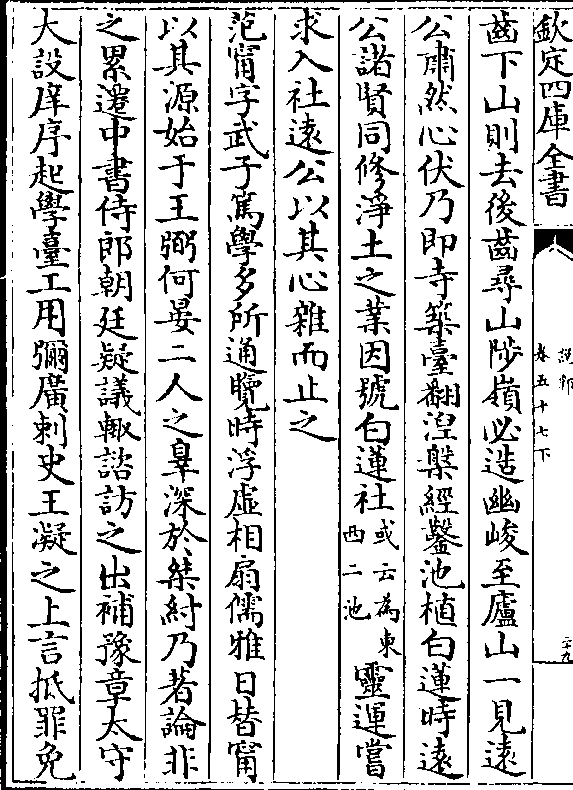 欽定四庫全書
說郛
卷五十七下
二十九
齒下山則去後齒尋山陟嶺必造幽峻至廬山一見遠
公肅然心伏乃即寺築臺翻涅槃經鑿池植白蓮時遠
公諸賢同修淨土之業因號白蓮社或云為東西二池靈運嘗
求入社遠公以其心雜而止之
范甯字武子篤學多所通覽時浮虛相扇儒雅日替甯
以其源始于王弼何晏二人之辠深於桀紂乃著論非
之累遷中書侍郎朝廷疑議輙諮訪之出補豫章太守
大設庠序起學臺工用彌廣刺史王凝之上言抵罪免